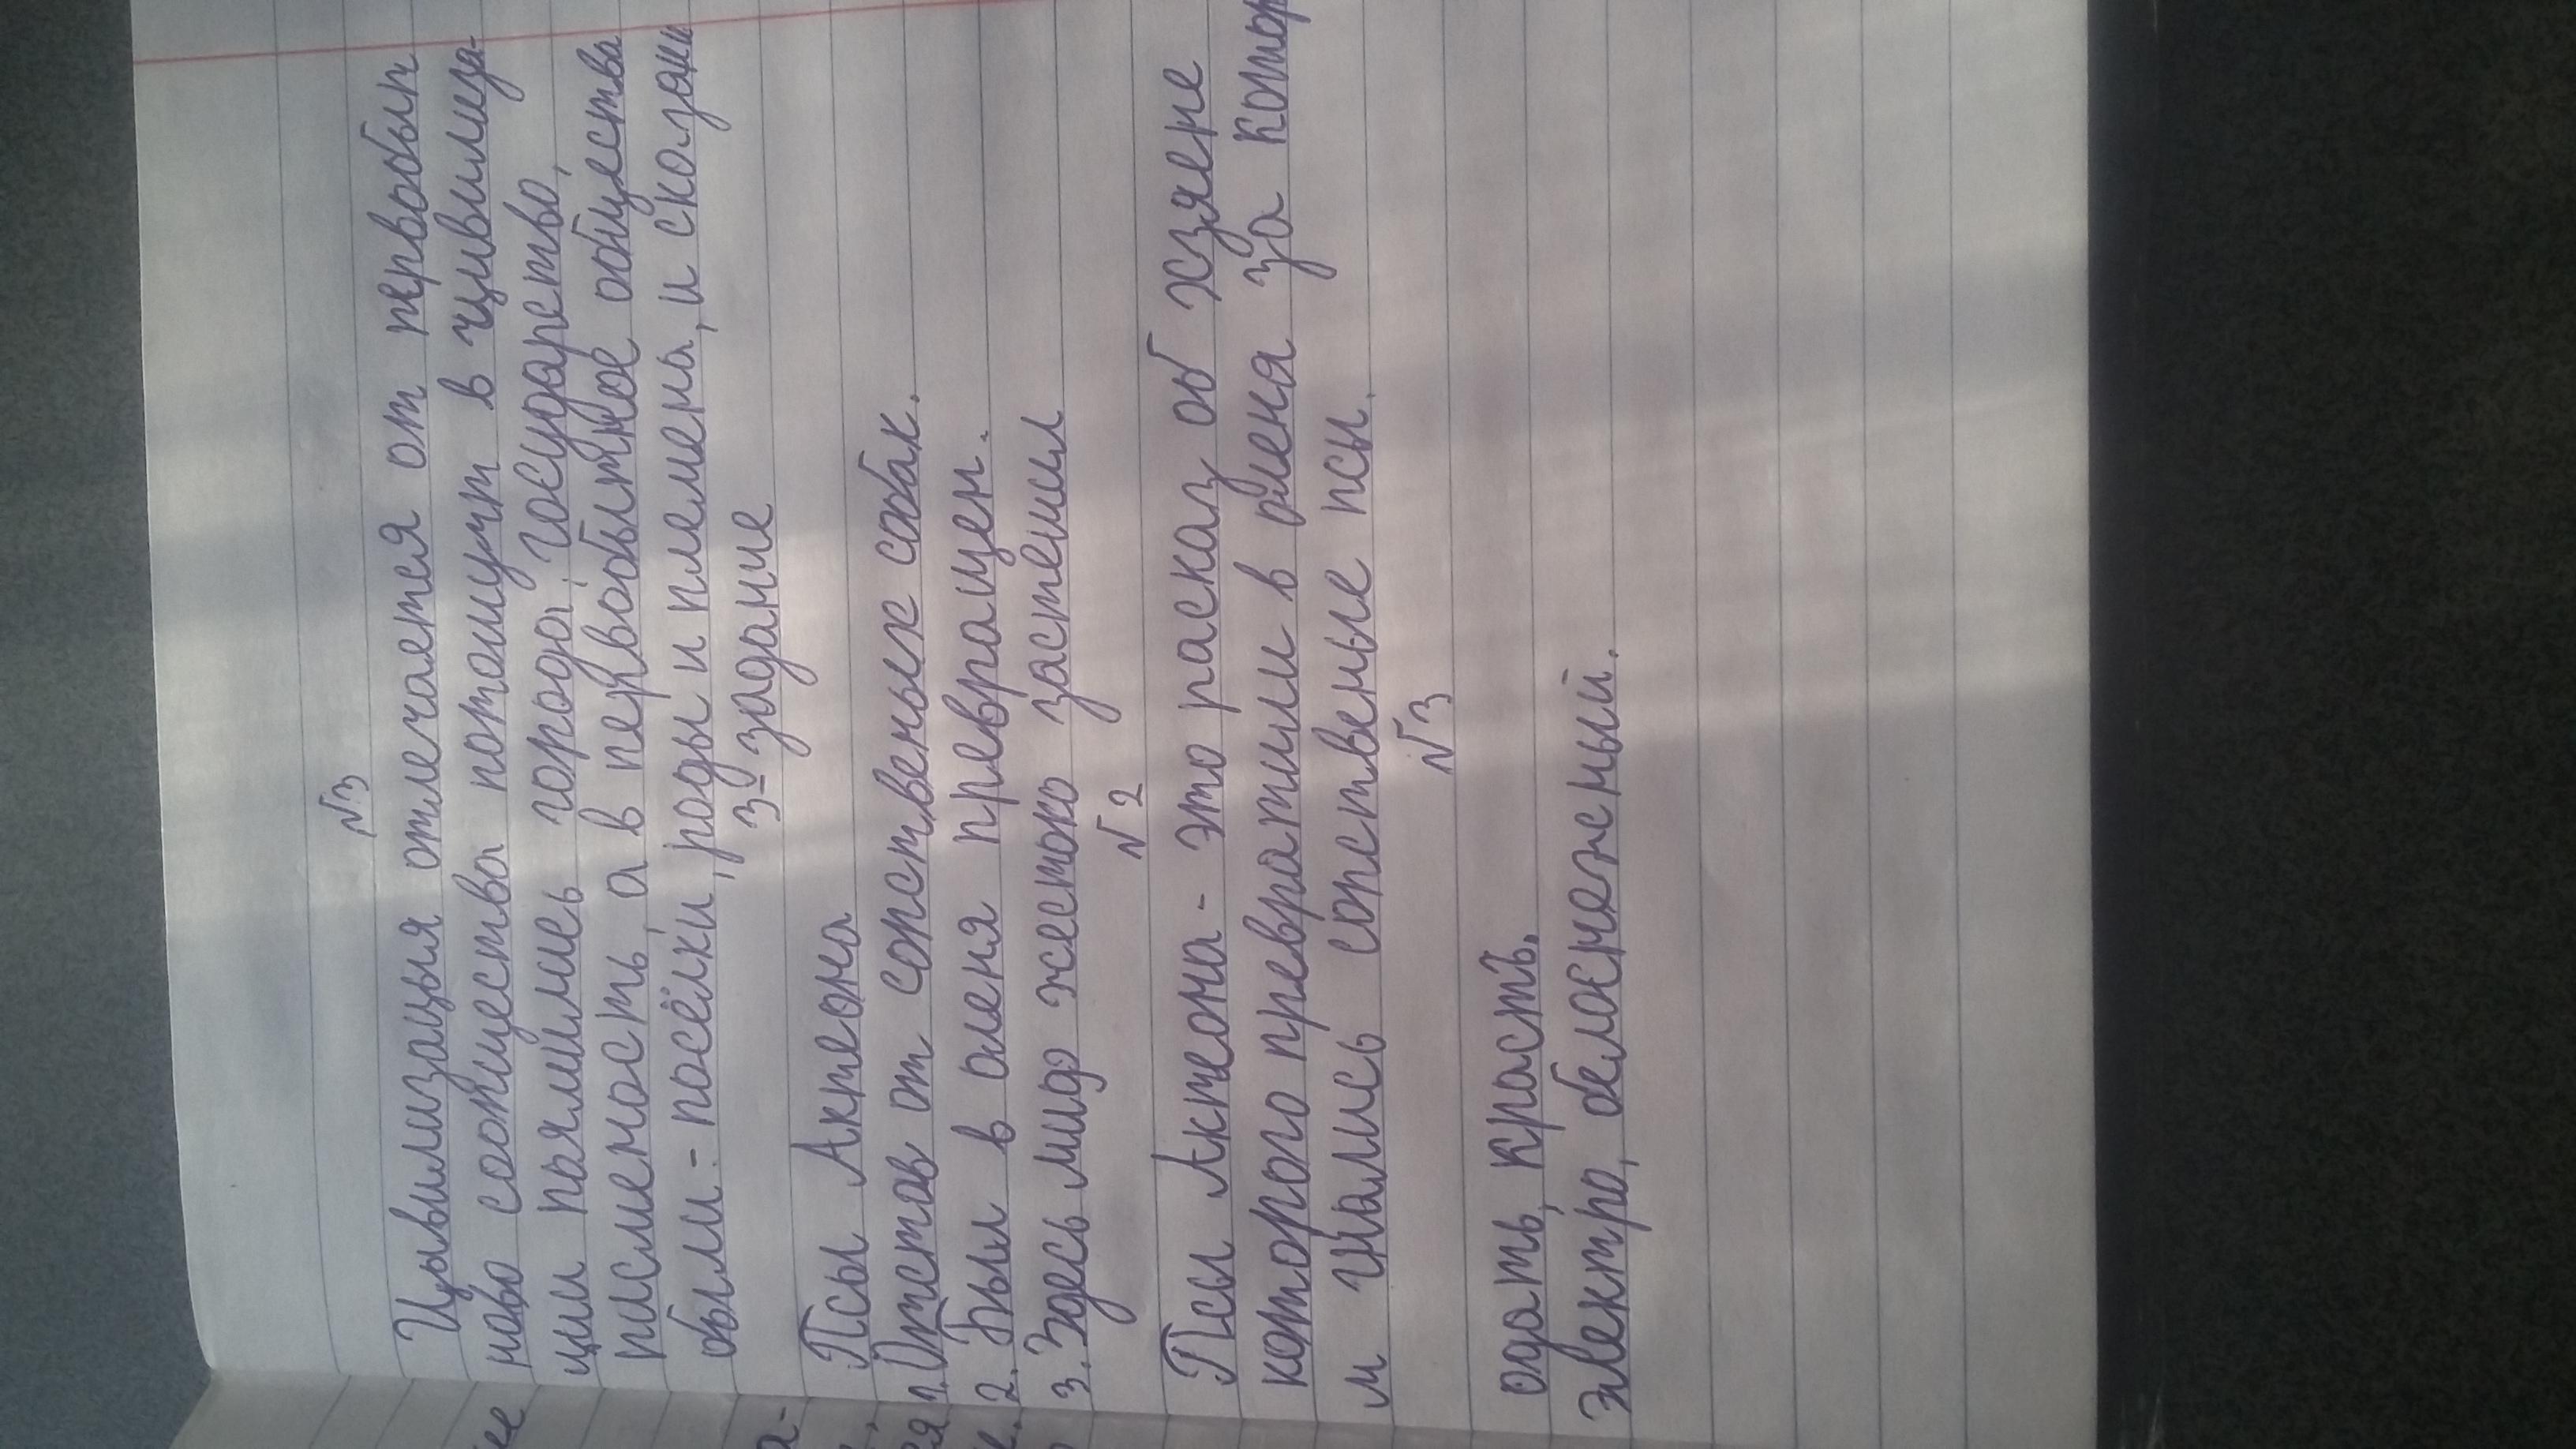 №3
Цывилизацыя отлечается от первобыт
ново соопщества потомушт в чивилиза-
ции паямились города, государство,
писменость, а в первобытное общества
были - посёлки, роды и племена, и сказаки
3-задание
Псы Актеона
1. Отстав от сопственых собак.
2. Был в оленя превращен.
3. Здесь миф жестоко застешил
№2
Псы Актеона - это расказ об хзяене
которого превратили в оленя за котор
м гнались сопственые псы.
№3
одать, красть.
электро, белоснеженый.
ее
а-
ся